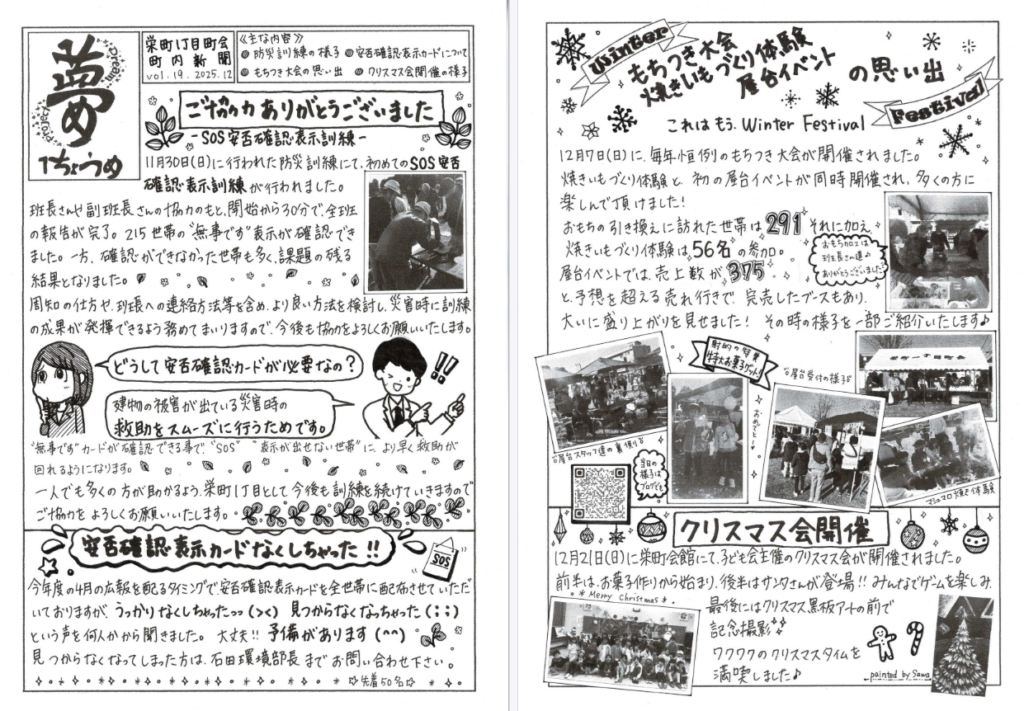 夢
Dream
1ちょうめ
栄町1丁目町会
町内新聞
vol.19. 2025.12
《主な内容》
◎防災訓練の様子 ◎安否確認表示カードについて
◎もちつき大会の思い出 ◎クリスマス会開催の様子
ご協力ありがとうございました
-SOS安否確認表示訓練-
11月30日(日)に行われた防災訓練にて、初めてのSOS安否
確認表示訓練が行われました。
班長さんや副班長さんの協力のもと、開始から30分で、全班
の報告が完了。215世帯の“無事です”表示が確認でき
ました。一方、確認ができなかった世帯も多く、課題の残る
結果となりました。
周知の仕方や、班長への連絡方法等を含め、より良い方法を検討し、災害時に訓練
の成果が発揮できるよう務めてまいりますので、今後も協力をよろしくお願いいたします。
どうして安否確認カードが必要なの?
!!
建物の被害が出ている災害時の
救助をスムーズに行うためです。
“無事です”カードが確認できる事で、“SOS” “表示が出せない世帯”に、より早く救助が
回れるようになります。
一人でも多くの方が助かるよう、栄町1丁目として今後も訓練を続けていきますので
ご協力をよろしくお願いいたします。
安否確認表示カードなくしちゃった!!
SOS
今年度の4月の広報を配るタイミングで、安否確認表示カードを全世帯に配布させていただ
いておりますが、うっかりなくしちゃたっっ(><) 見つからなくなっちゃた(;;)
という声を何人かから聞きました。大丈夫!!予備があります(^^)
見つからなくなってしまった方は、石田環境部長までお問い合わせ下さい。
☆先着50名☆
Winter
もちつき大会
焼きいもづくり体験
屋台イベント
の思い出
Festival
これはもう、Winter Festival
12月7日(日)に、毎年恒例のもちつき大会が開催されました。
焼きいもづくり体験と、初の屋台イベントが同時開催され、多くの方に
楽しんで頂けました!
おもちの引き換えに訪れた世帯は291 それに加え、
焼きいもづくり体験は、56名の参加。
屋台イベントでは、売上数が375
と、予想を超える売れ行きで、完売したブースもあり、
大いに盛り上がりを見せました! その時の様子を一部ご紹介いたします♪
おもち加工は
班長さん達♪
ありがとうございました
射的の景品
特大お菓子ゲット!
おめでとう
◎屋台受付の様子
◎屋台スタッフ達の裏側
当日の
様子は
ブログでも
マシュマロ焼き体験
クリスマス会開催
12月21日(日)に栄町会館にて、子ども会主催のクリスマス会が開催されました。
前半は、お菓子作りから始まり、後半はサンタさんが登場!!みんなでゲームを楽しみ、
*Merry Christmas*
最後にはクリスマス黒板アートの前で
記念撮影
ワクワクのクリスマスタイムを
満喫しました♪
painted by Sawa